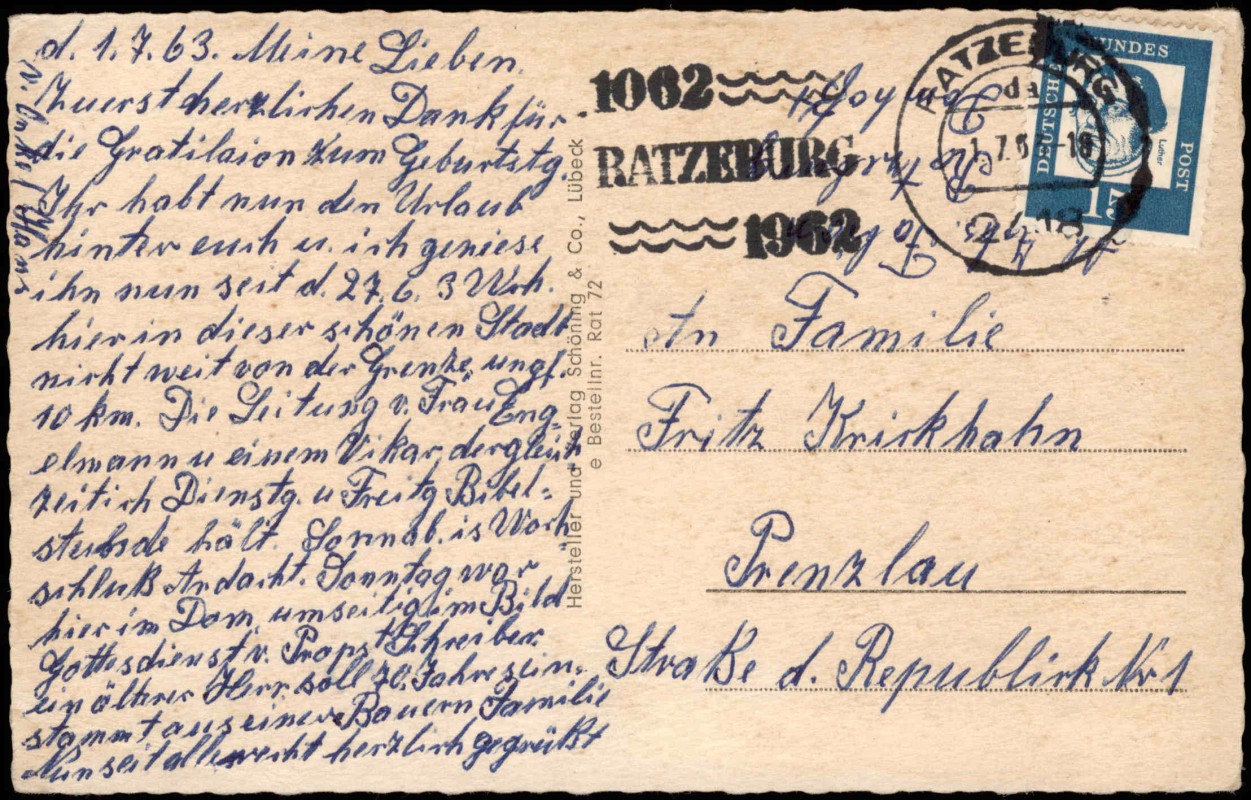 d. 1.7.63. Meine Lieben.
Zuerst herzlichen Dank für
die Gratilaion zum Geburtstg.
Ihr habt nun den Urlaub
hinter euch u. ich geniese
ihn nun seit d. 27.6. 3 Wch.
hier in dieser schönen Stadt
nicht weit von der Grenze, ungf.
10 km. Die Leitung v. Frau Eng-
elmann u einem Vikar, der gleich
zeitich Dienstg. u Freitg Bibel-
stubde hält. Sonnab. is Woch
schluß Andacht. Sonntag war
hier im Dom, umseitig im Bild
Gottesdienst v. Propst Schreiber.
ein älterer Herr soll 70. Jahre sein.
stammt aus einer Bauern Familie
Nun seit alle recht herzlich gegrüßt
Hersteller und Verlag Schöning & Co., Lübeck
e Bestellnr. Rat 72
1062
RATZEBURG
1962
RATZEBURG
1.7.6 -18
2418
DEUTSCHE BUNDESPOST
Luther
15
Domhof
Ratzeburg
An Familie
Fritz Krickhahn
Prenzlau
Straße d. Republick Nr 1